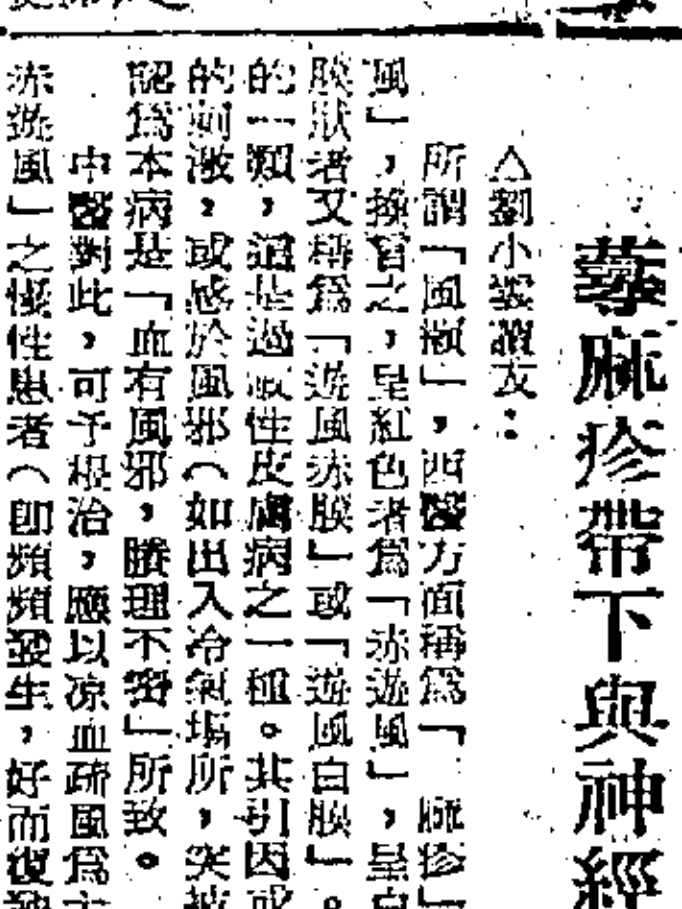 蕁麻疹帶下與神經
△劉小裳讀友：
所謂「風㿔」，西醫方面稱為「 麻疹」
風」，換言之，呈紅色者為「赤遊風」，呈白
膜狀者又稱為「遊風赤膜」或「遊風白膜」。
的一類，這是過敏性皮膚病之一種。其引因或
的刺激，或感於風邪（如出入冷氣場所，突被
認為本病是「血有風邪，腠理不密」所致。
中醫對此，可予根治，應以凉血疏風為主
赤遊風」之慢性患者（即頻頻發生，好而復發